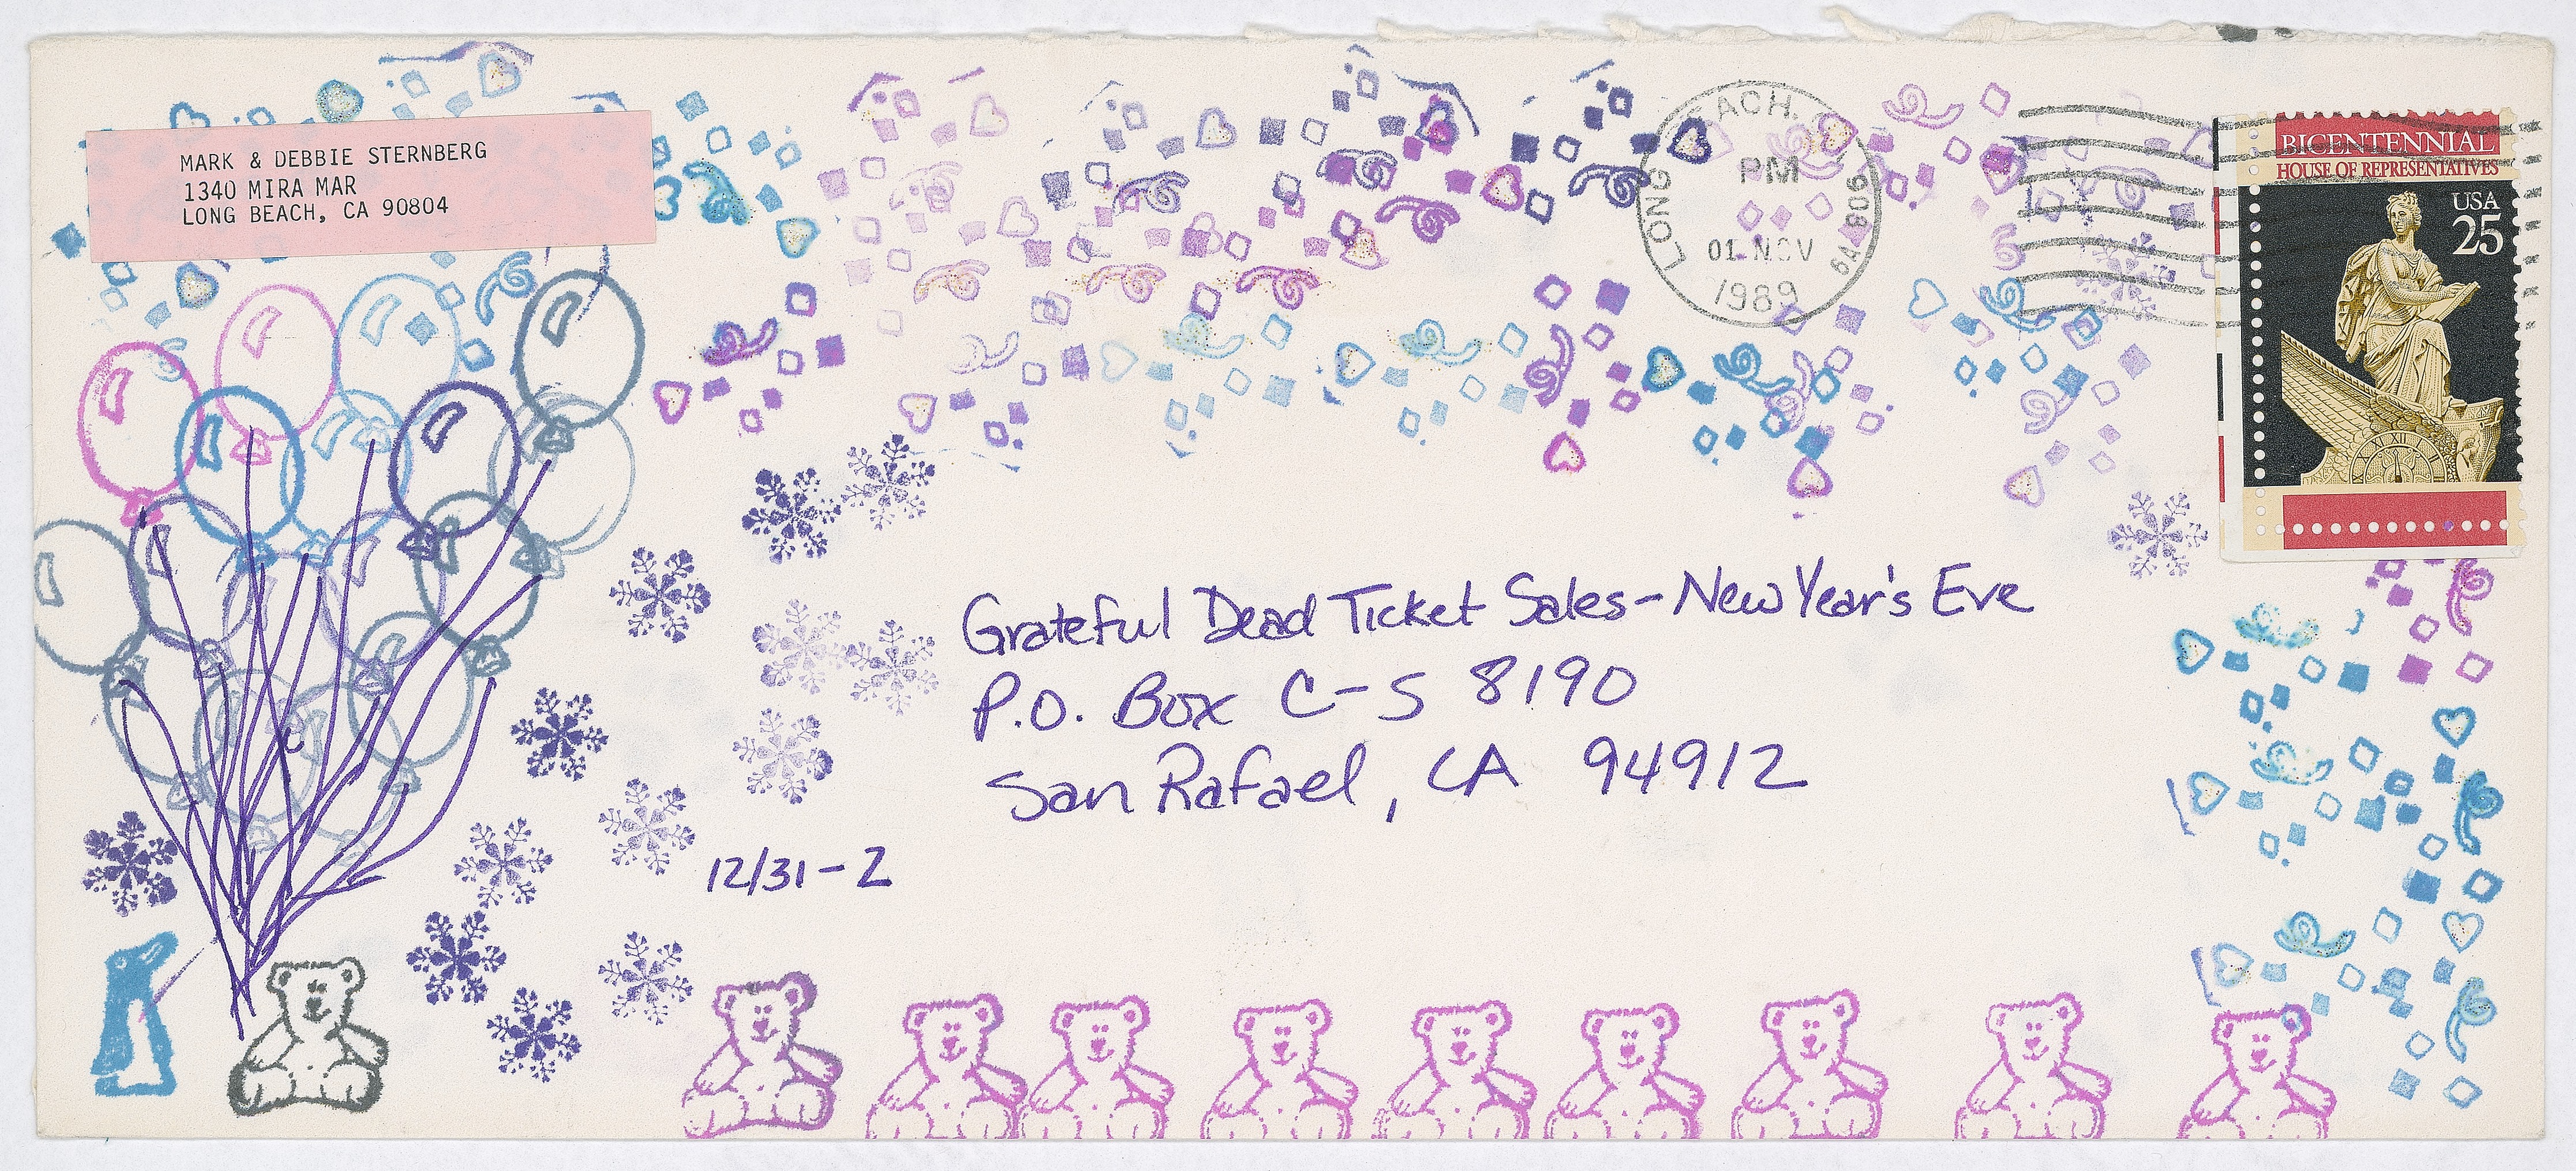 MARK & DEBBIE STERNBERG
1340 MIRA MAR
LONG BEACH, CA 90804
LONG ACH. CA 906
PM
01 NOV
1989
BICENTENNIAL
HOUSE OF REPRESENTATIVES
USA
25
Grateful Dead Ticket Sales-New Year's Eve
P.O. Box C-S 8190
San Rafael, CA 94912
12/31-2